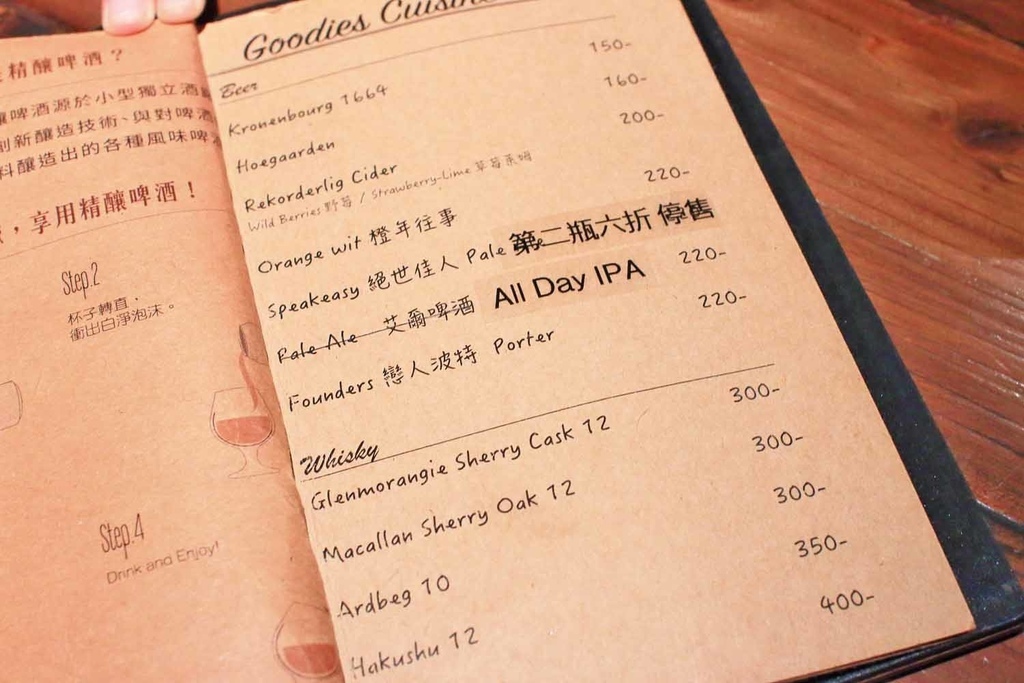 精釀啤酒？
釀啤酒源於小型獨立酒
創新釀造技術、與對啤酒
料釀造出的各種風味啤
，享用精釀啤酒！
Step.2
杯子轉直，
衝出白淨泡沫。
Step.4
Drink and Enjoy!
Goodies Cuisine
Beer
Kronenbourg 1664 150-
Hoegaarden 160-
Rekorderlig Cider 200-
Wild Berries 野莓 / Strawberry-Lime 草莓萊姆
Orange wit 橙年往事 220-
Speakeasy 絕世佳人 Pale 第二瓶六折 停售
Pale Ale 艾爾啤酒 All Day IPA 220-
Founders 戀人波特 Porter 220-
Whisky
Glenmorangie Sherry Cask 12 300-
Macallan Sherry Oak 12 300-
Ardbeg 10 300-
Hakushu 12 350-
400-